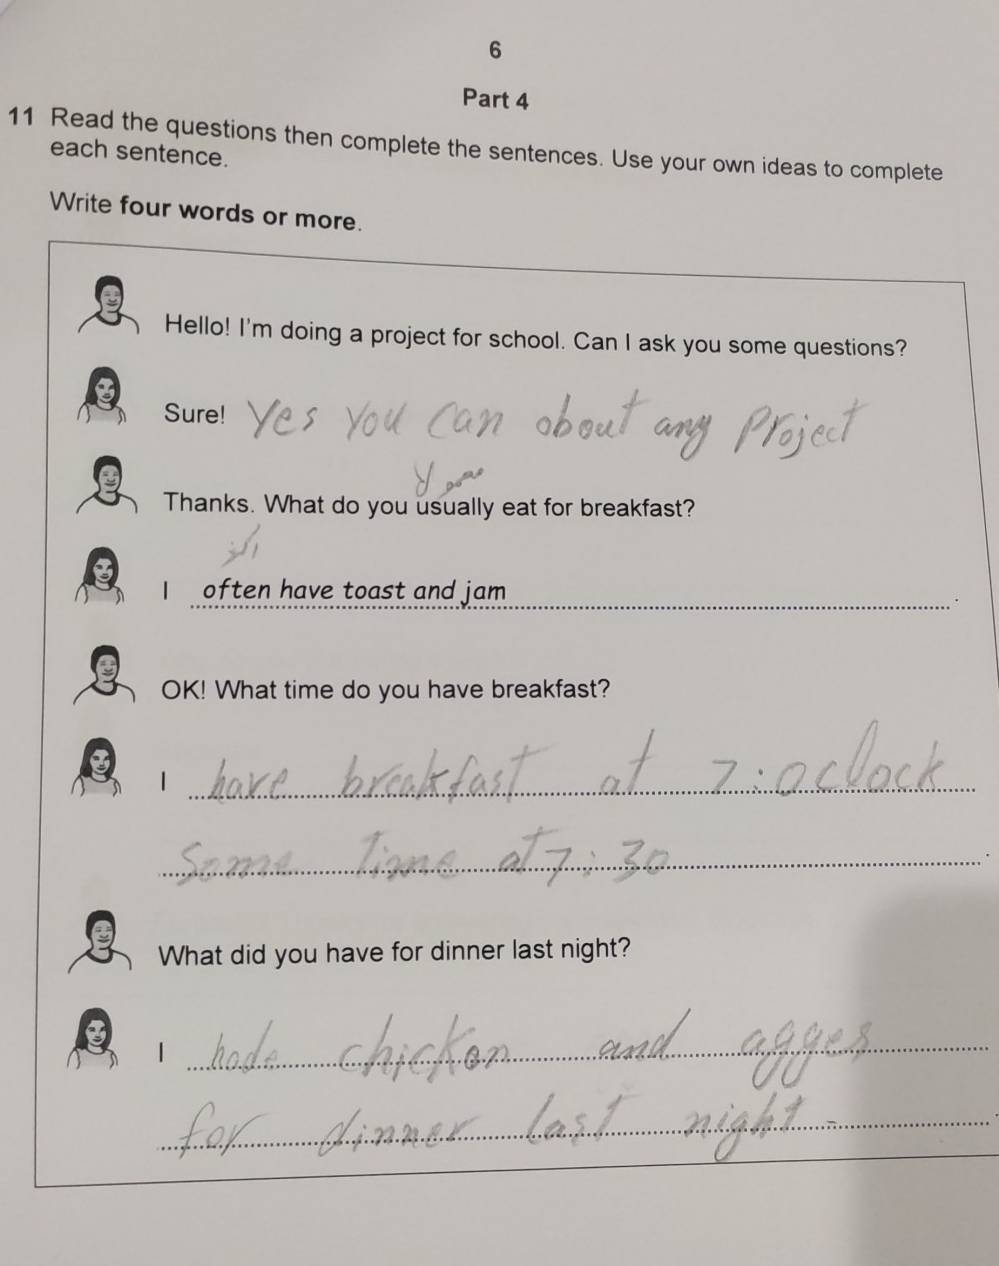 6
Part 4
11 Read the questions then complete the sentences. Use your own ideas to complete
each sentence.
Write four words or more.
Hello! I'm doing a project for school. Can I ask you some questions?
Sure! Yes you can about any Project
Thanks. What do you usually eat for breakfast?
I often have toast and jam.
OK! What time do you have breakfast?
I have breakfast at 7:oclock
Some Time at 7:30.
What did you have for dinner last night?
I hade chicken and agges
for dinner last night.